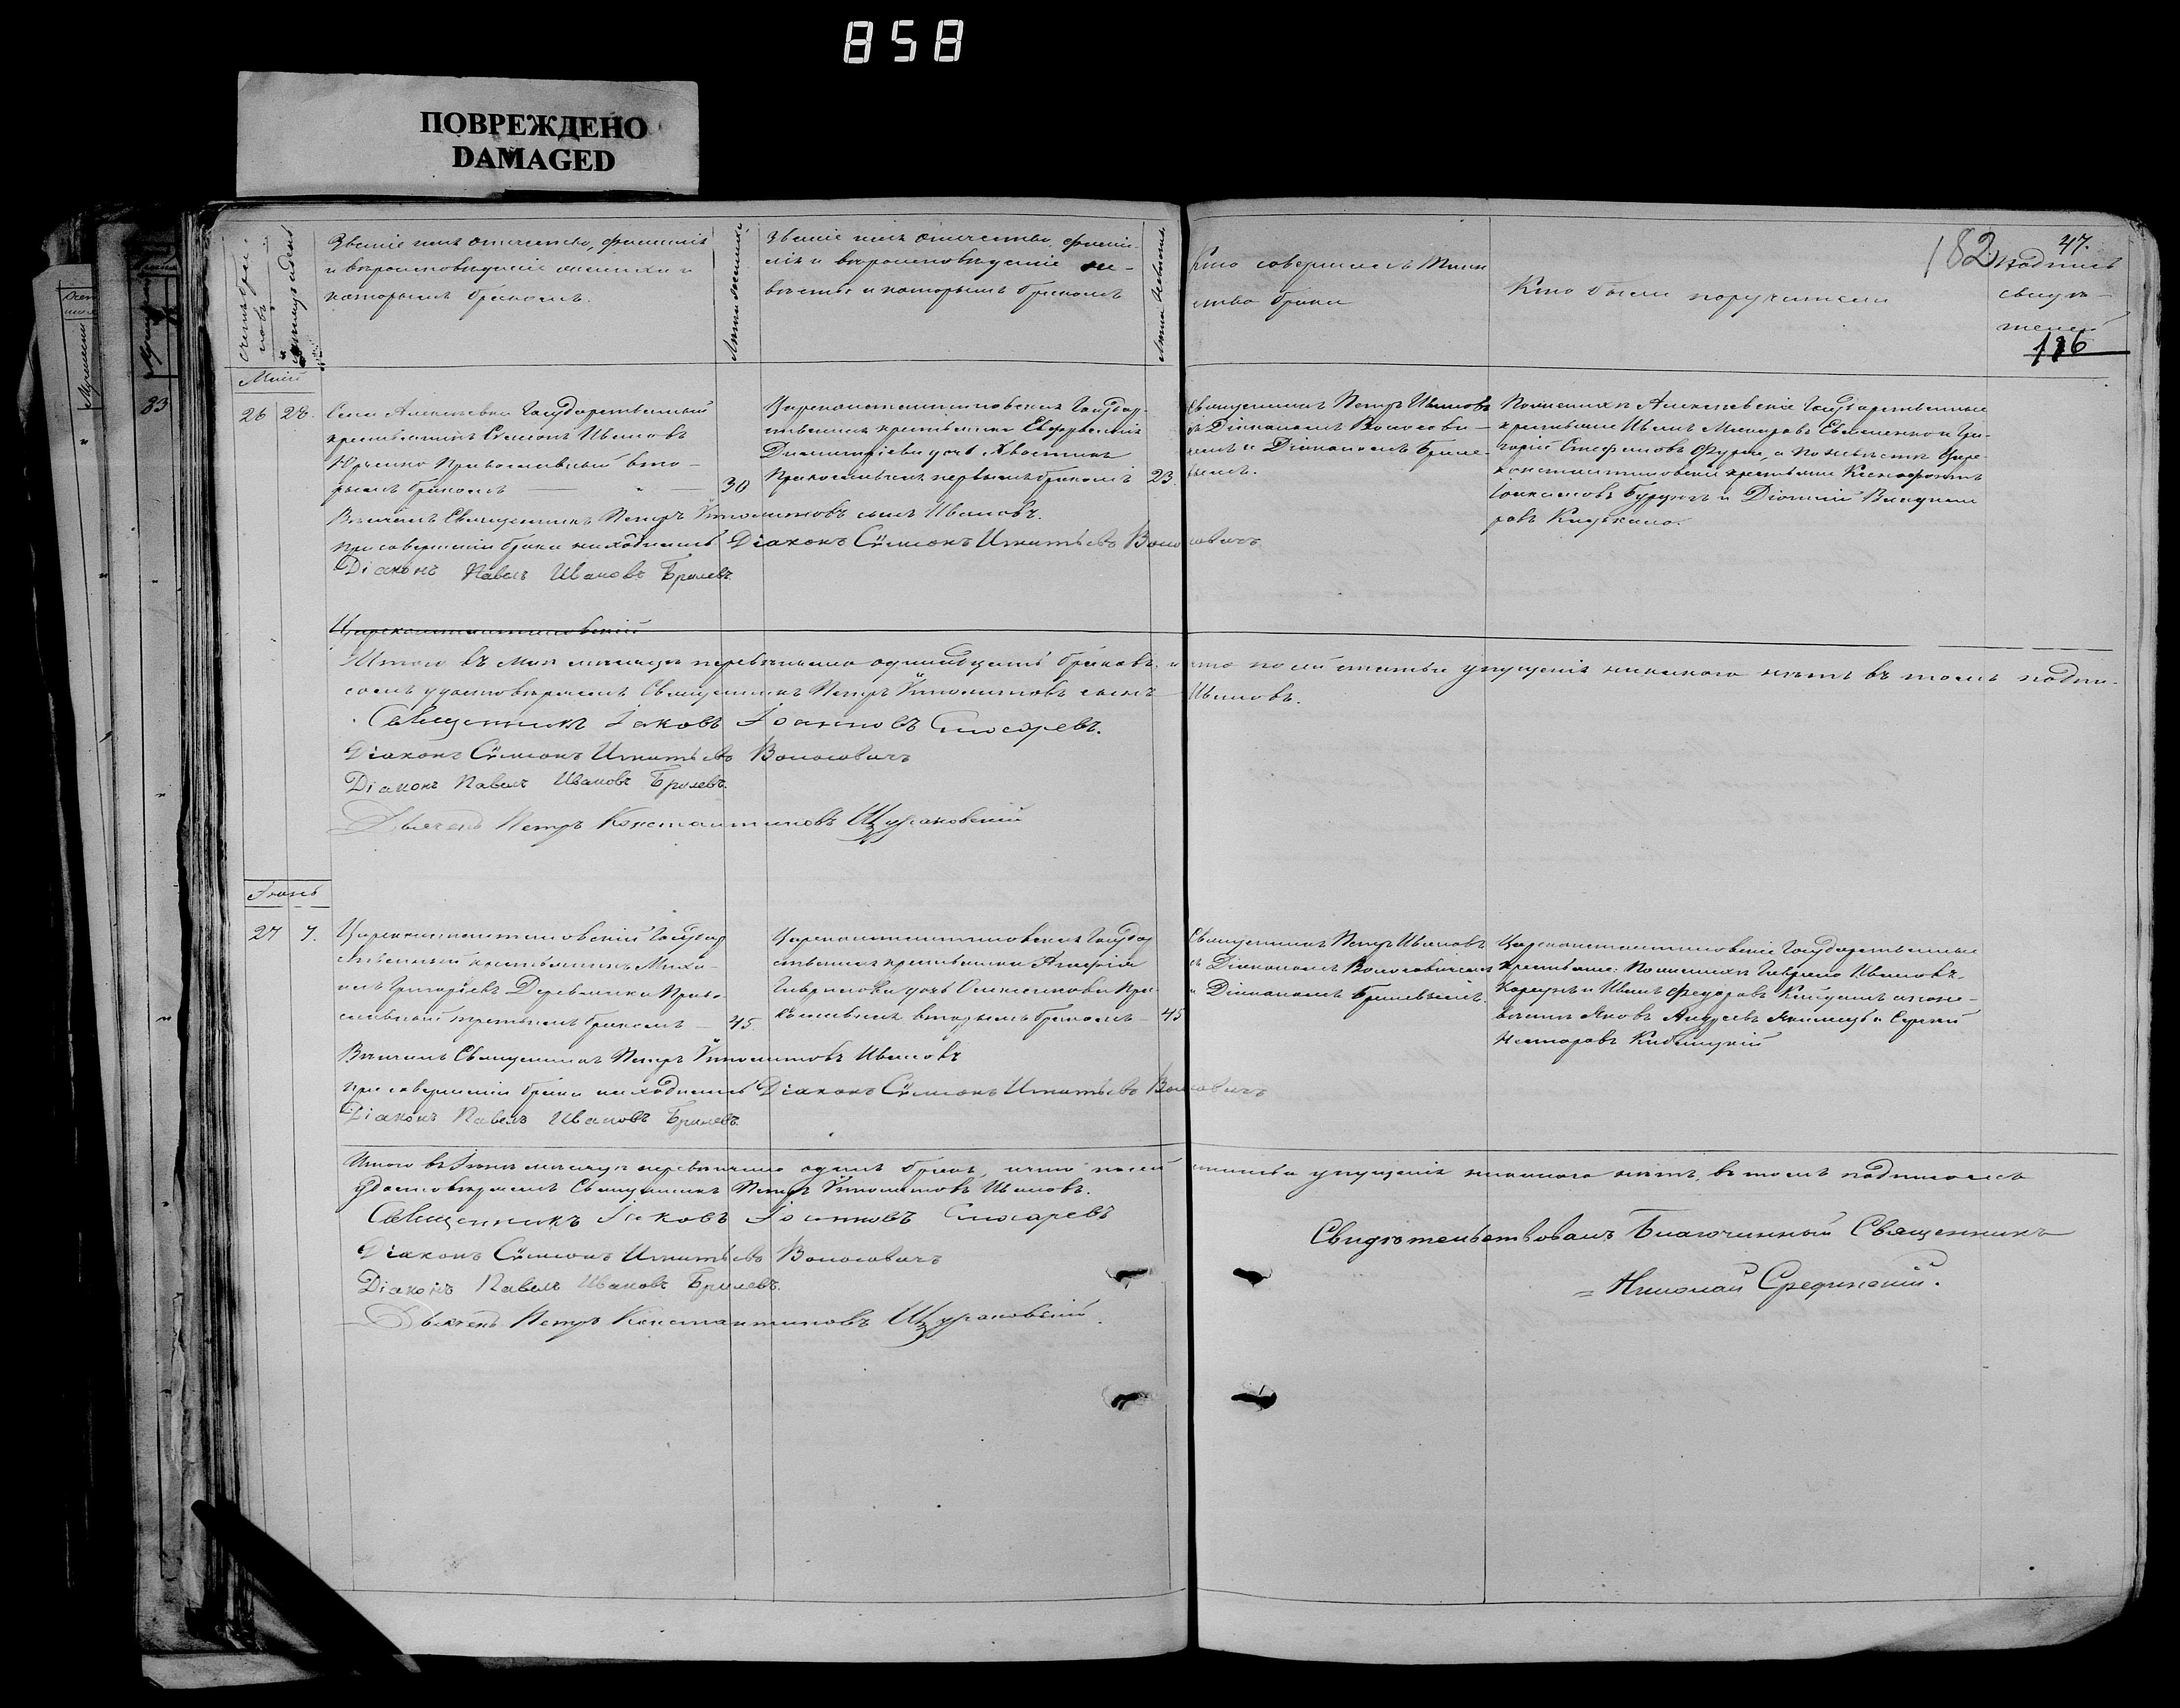 858
ПОВРЕЖДЕНО
DAMAGED
182 47.
116
счетъ бра-
ковъ
Званіе имя отчество, фамилія
и вѣроисповѣданіе жениха и
которымъ бракомъ.
Лѣта жениха
Званіе имя отчество, фами-
лія и вѣроисповѣданіе не-
вѣсты и которымъ бракомъ
Лѣта невѣсты
Кто совершалъ Таин
ство брака
Кто были поручители
Подпись
свидѣ-
телей
Май
26 28.
Села Алексѣевки Государственный
крестьянинъ Симонъ Ивановъ
Юрченко Православный вто-
рымъ бракомъ — " — 30
Цареконстантиновская Государ-
ственная крестьянка Евфросинія
Димитріева дочь
Православная первымъ бракомъ 23.
Священникъ Петръ Ивановъ
съ Діакономъ Волосови-
чемъ и Діакономъ Бриле-
вымъ.
По женихѣ Алексѣевскіе Государственные
крестьяне Иванъ Макаровъ Евтушенко и Гри-
горій Стефановъ Фурса, а по невѣстѣ Царе-
константиновскіе крестьяне Ксенофонтъ
Іоакимовъ и Діонисій
ровъ
Вѣнчалъ Священникъ Петръ Ѵпполитовъ сынъ Ивановъ.
при совершеніи брака находились Діаконъ Сѵмеонъ Игнатьевъ Волосовичъ
Діаконъ Павелъ Ивановъ Брилевъ.
Цареконстантиновскій
Итого въ Маѣ мѣсяцѣ перевѣнчано одинадцать браковъ, и что по сей статьи упущенія никакого нѣтъ въ томъ подпи-
сомъ удостовѣряемъ Священникъ Петръ Ѵпполитовъ сынъ Ивановъ.
Священникъ Іаковъ Іоанновъ Слюсаревъ.
Діаконъ Сѵмеонъ Игнатьевъ Волосовичъ
Діаконъ Павелъ Ивановъ Брилевъ.
Дьячекъ Петръ Константиновъ Щураковскій
Іюнь
27 7.
Цареконстантиновскій Государ
ственный крестьянинъ Миха-
илъ Григорьевъ Деревянко Право-
славный третьимъ бракомъ — 45.
Цареконстантиновская Государ
ственная крестьянка Агафія
Гаврилова дочь Пра-
вославная вторымъ бракомъ — 45
Священникъ Петръ Ивановъ
съ Діакономъ Волосовичемъ
и Діакономъ Брилевымъ.
Цареконстантиновскіе Государственные
крестьяне: По женихѣ Гаврило Ивановъ
и Иванъ Федоровъ а по не-
вѣстѣ Яковъ Андреевъ и Сергій
Несторовъ
Вѣнчалъ Священникъ Петръ Ѵпполитовъ Ивановъ
при совершеніи брака находились Діаконъ Сѵмеонъ Игнатьевъ Волосовичъ
Діаконъ Павелъ Ивановъ Брилевъ.
Итого въ Іюнѣ мѣсяцѣ перевѣнчано одинъ бракъ, и что по сей статьи упущенія никакого нѣтъ, въ томъ подписомъ
удостовѣряемъ Священникъ Петръ Ѵпполитовъ Ивановъ.
Священникъ Іаковъ Іоанновъ Слюсаревъ
Діаконъ Сѵмеонъ Игнатьевъ Волосовичъ
Діаконъ Павелъ Ивановъ Брилевъ.
Дьячекъ Петръ Константиновъ Щураковскій.
Свидѣтельствовалъ Благочинный Священникъ
Николай Срединскій.
83